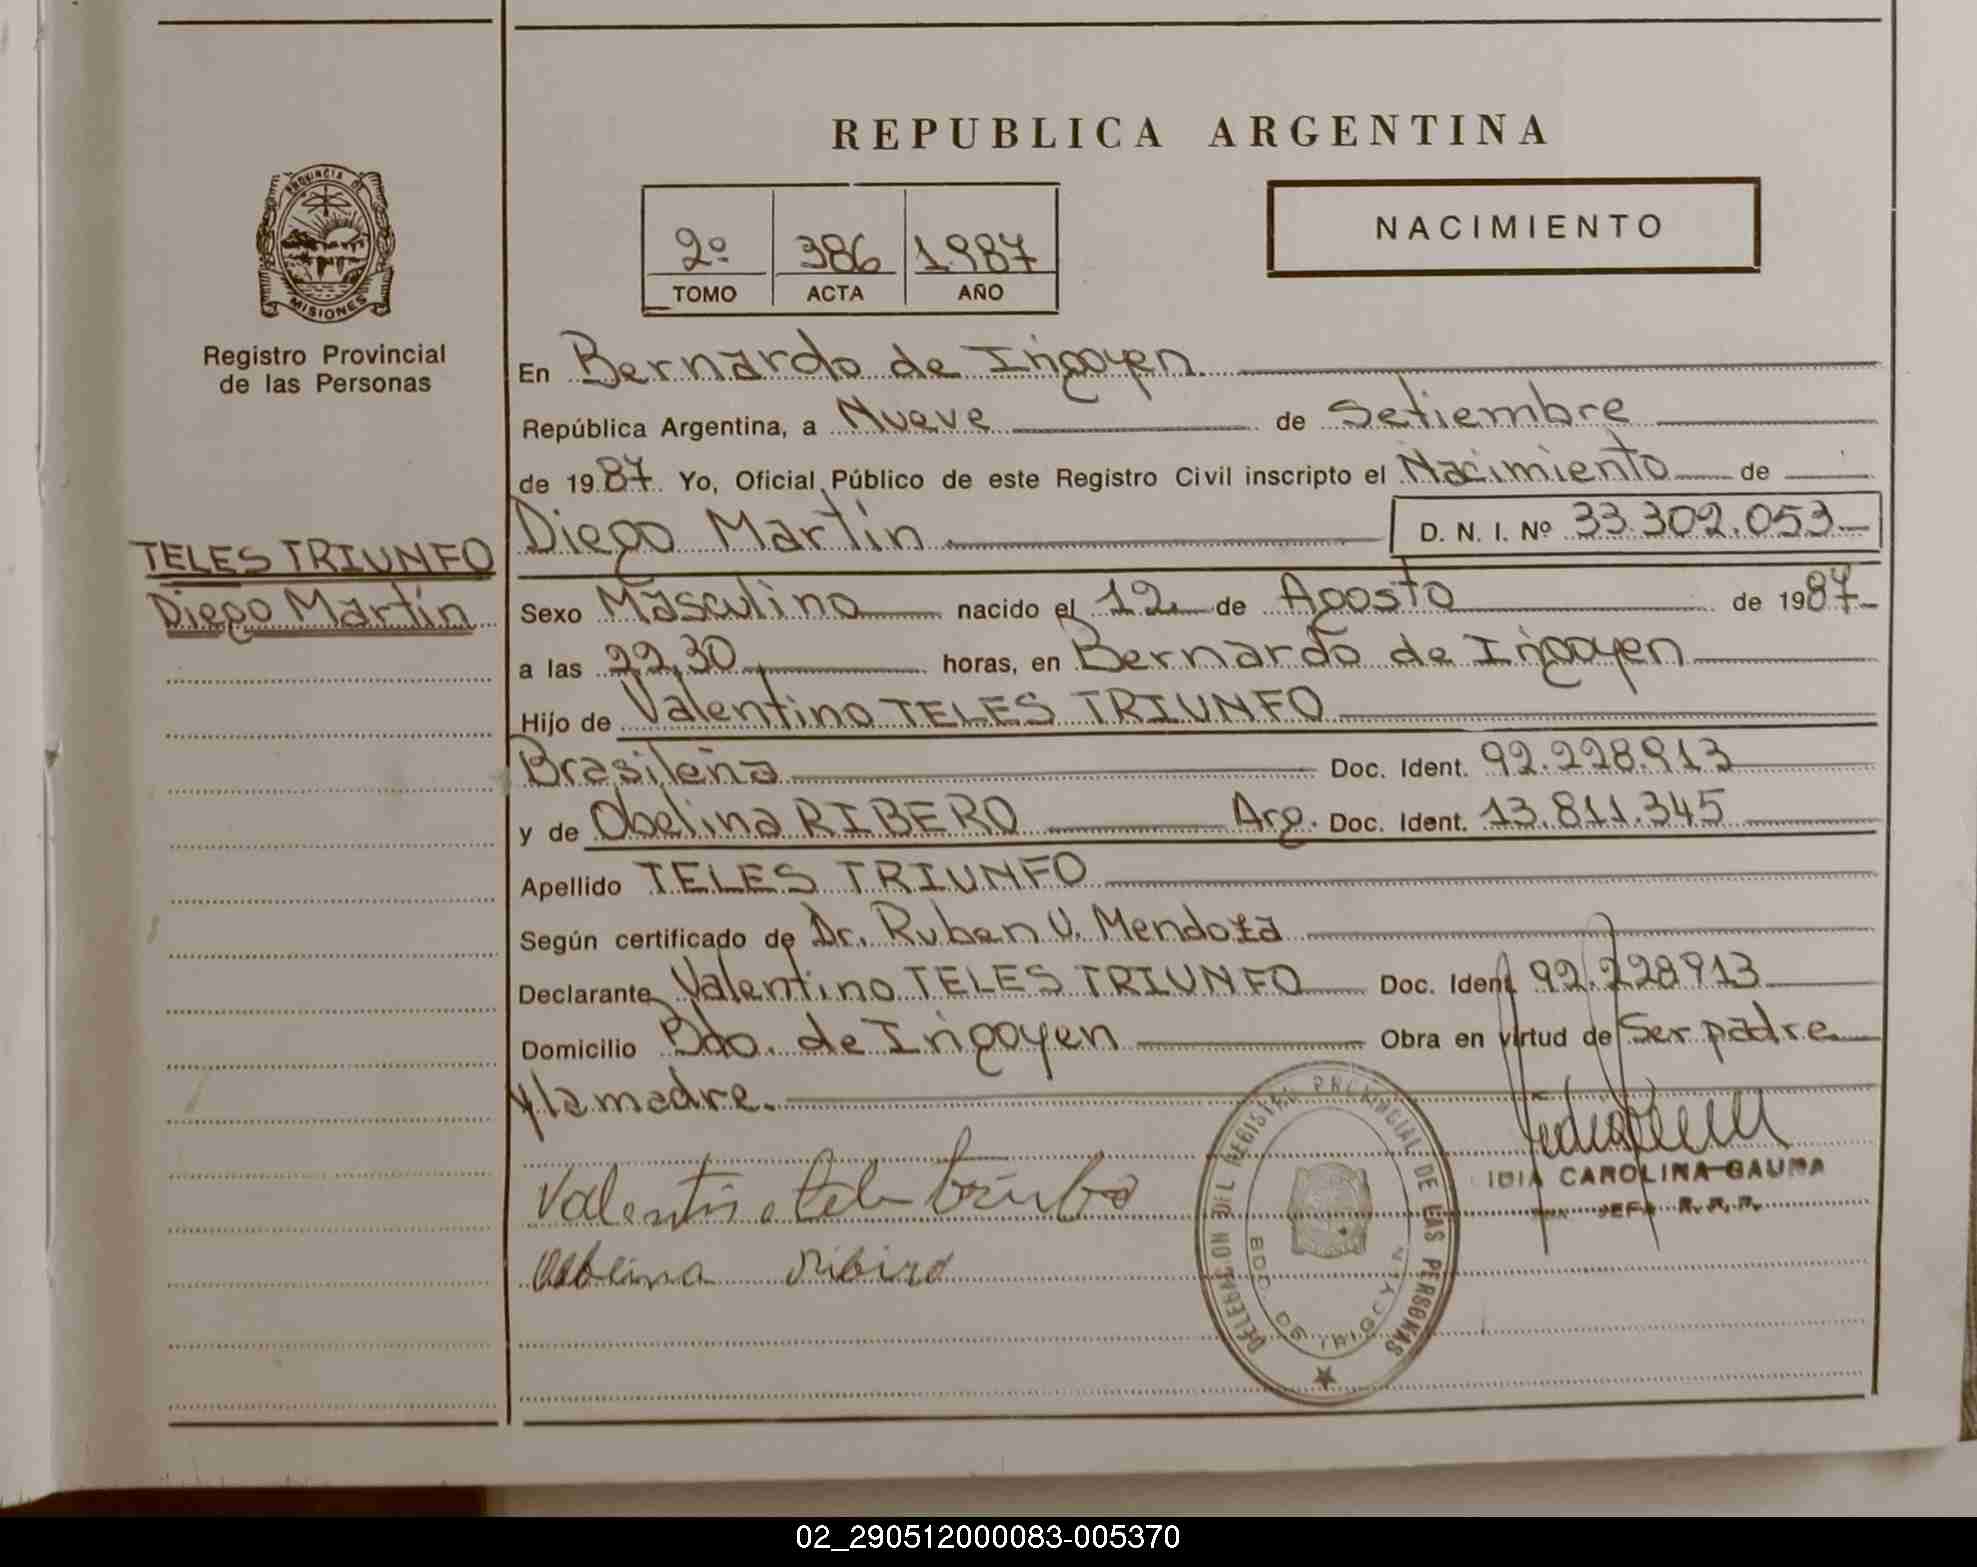 REPUBLICA ARGENTINA
PROVINCIA DE
MISIONES
Registro Provincial
de las Personas
NACIMIENTO
2º 386 1987
TOMO ACTA AÑO
En Bernardo de Irigoyen
República Argentina, a Nueve de Setiembre
de 1987 Yo, Oficial Público de este Registro Civil inscripto el Nacimiento de
Diego Martín D. N. I. Nº 33.302.053
TELES TRIUNFO
Diego Martín
Sexo Masculino nacido el 12 de Agosto de 1987
a las 22,30 horas, en Bernardo de Irigoyen
Hijo de Valentino TELES TRIUNFO
Brasileña Doc. Ident. 92.228.913
y de Obelina RIBERO Arg. Doc. Ident. 13.811.345
Apellido TELES TRIUNFO
Según certificado de Dr. Ruben V. Mendoza
Declarante Valentino TELES TRIUNFO Doc. Ident. 92.228913
Domicilio Bdo. de Irigoyen Obra en virtud de Ser padre
y la madre.
DELEGACION DEL REGISTRO PROVINCIAL DE LAS PERSONAS
BDO. DE IRIGOYEN
CAROLINA
JEFA R.P.P.
02_290512000083-005370